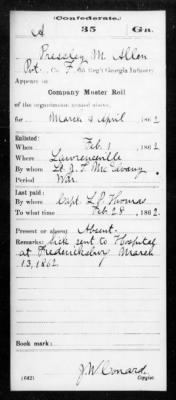 (Confederate.)
A 35 Ga.
Pressley M. Allen
Pvt., Co. F, 35 Reg't Georgia Infantry.
Appears on
Company Muster Roll
of the organization named above,
for March & April, 1862.
Enlisted:
When Feb. 1, 1862.
Where Lawrenceville
By whom Lt. J. T.
Period War
Last paid:
By whom Capt. L. J. Thomas
To what time Feb. 28, 1862.
Present or absent Absent
Remarks: Sick sent to Hospital
at Fredericksburg March
13, 1862
Book mark:
(642) J. W. Conard
Copyist.